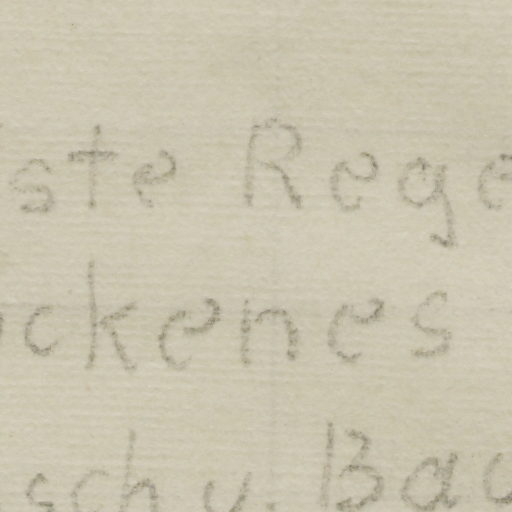 ste Rege
ckenes
sch u. Bac